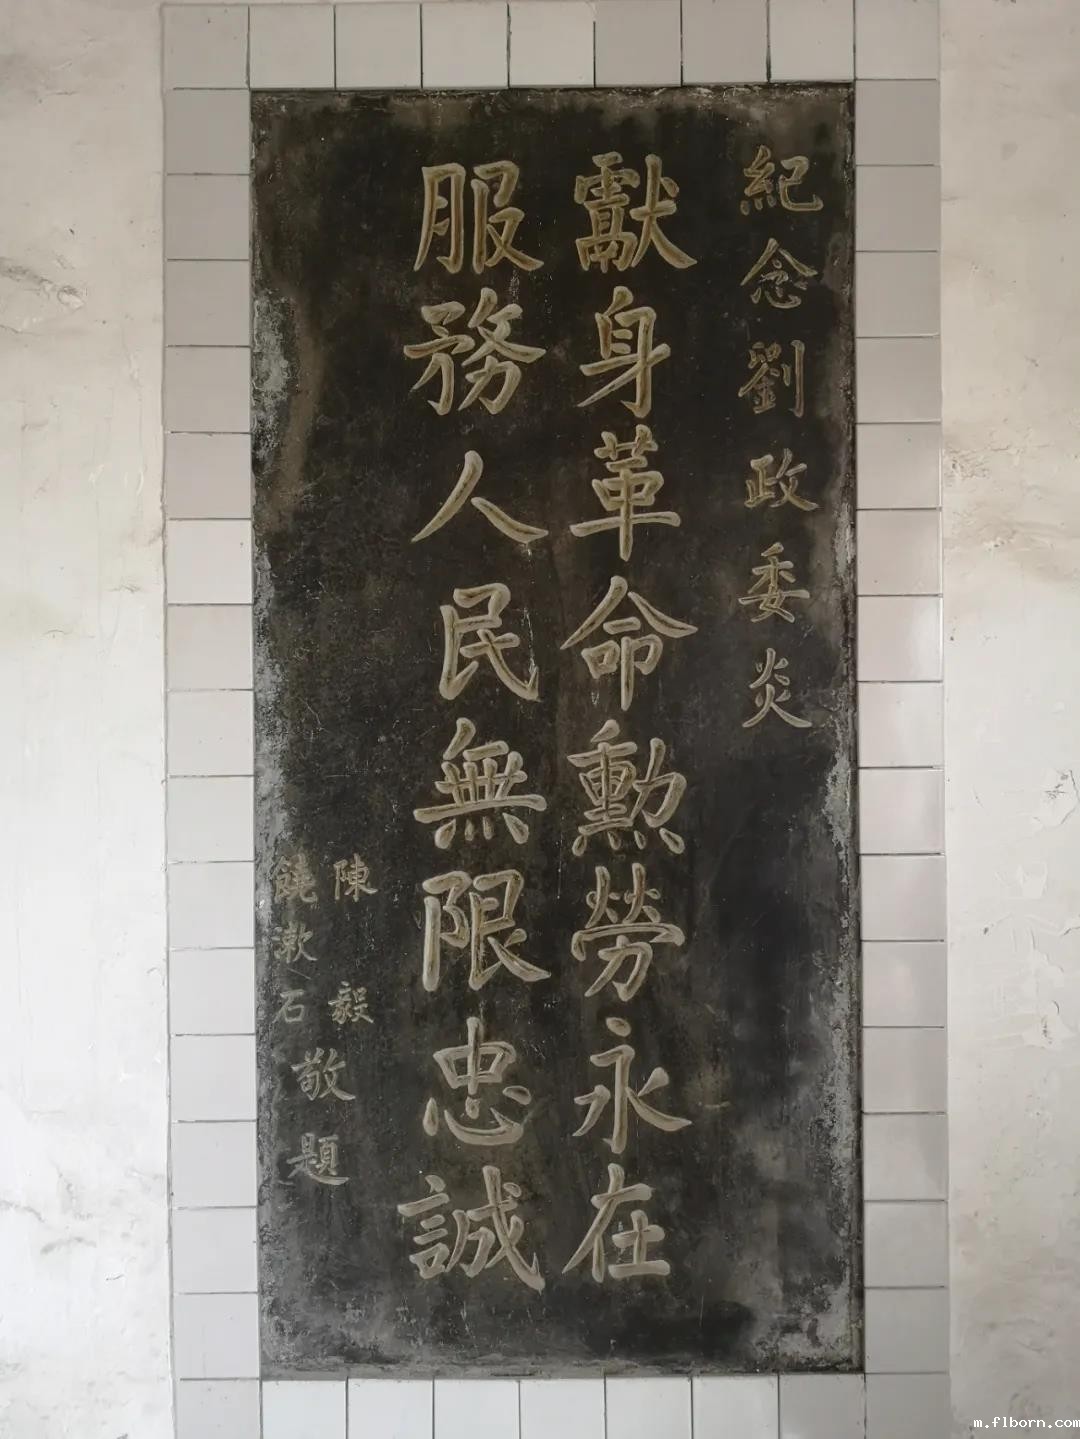 紀念劉政委炎
獻身革命勳勞永在
服務人民無限忠誠
陳毅
饒漱石
敬題
m.flborn.com